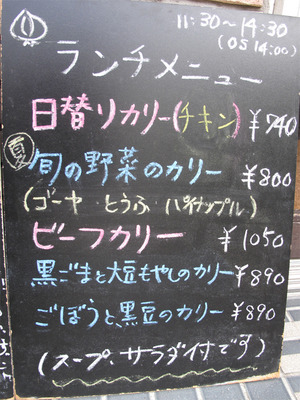 11:30～14:30
(OS 14:00)
ランチメニュー
日替りカリー(チキン) ¥740
夏
旬の野菜のカリー ¥800
(ゴーヤ とうふ パイナップル)
ビーフカリー ¥1050
黒ごまと大豆もやしのカリー ¥890
ごぼうと黒豆のカリー ¥890
(スープ、サラダ付です)